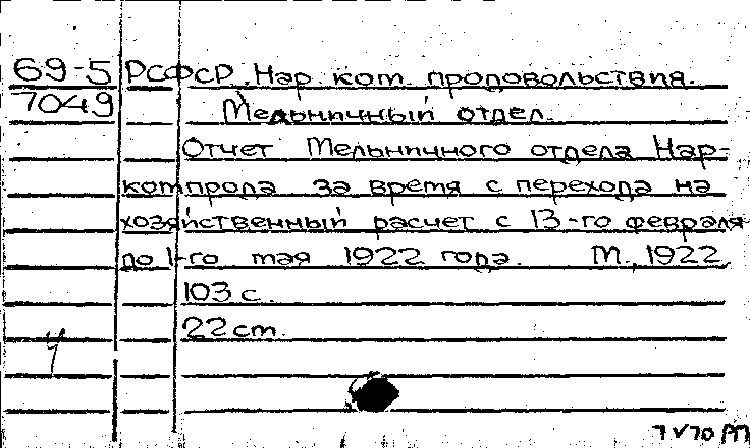 69-5 РСФСР. Нар. ком. продовольствия.
7049 Мельничный отдел.
Отчет Мельничного отдела Нар-
компрода за время с перехода на
хозяйственный расчет с 13-го февраля
по 1-го мая 1922 года. М., 1922.
103 с.
22 см.